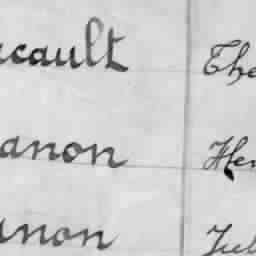 acault The
anon Hen
anon Jul